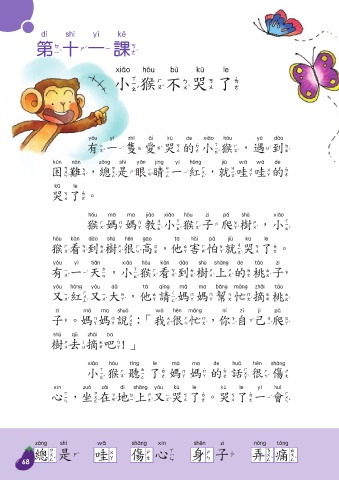 dì shí yī kè
第十一課
xiǎo hóu bù kū le
小猴不哭了
yǒu yì zhī ài kū de xiǎo hóu yù dào
有一隻愛哭的小猴，遇到
kùn nán zǒng shì yǎn jīng yì hóng jiù wā wā de
困難，總是眼睛一紅，就哇哇的
kū le
哭了。
hóu mā ma jiāo xiǎo hóu zi pá shù xiǎo
猴媽媽教小猴子爬樹，小
hóu kàn dào shù hěn gāo tā hài pà jiù kū le
猴看到樹很高，他害怕就哭了。
yǒu yì tiān xiǎo hóu kàn dào shù shàng de táo zi
有一天，小猴看到樹上的桃子，
yòu hóng yòu dà tā qǐng mā ma bāng máng zhāi táo
又紅又大，他請媽媽幫忙摘桃
zi mā ma shuō wǒ hěn máng nǐ zì jǐ pá
子。媽媽說：「我很忙，你自己爬
shù qù zhāi ba
樹去摘吧！」
xiǎo hóu tīng le mā ma de huà hěn shāng
小猴聽了媽媽的話很傷
xīn zuò zài dì shàng yòu kū le kū le yì huǐ
心，坐在地上又哭了。哭了一會
zǒng shì wā shāng xīn shēn zi nòng tòng
總是 哇 傷心 身子 弄痛
68